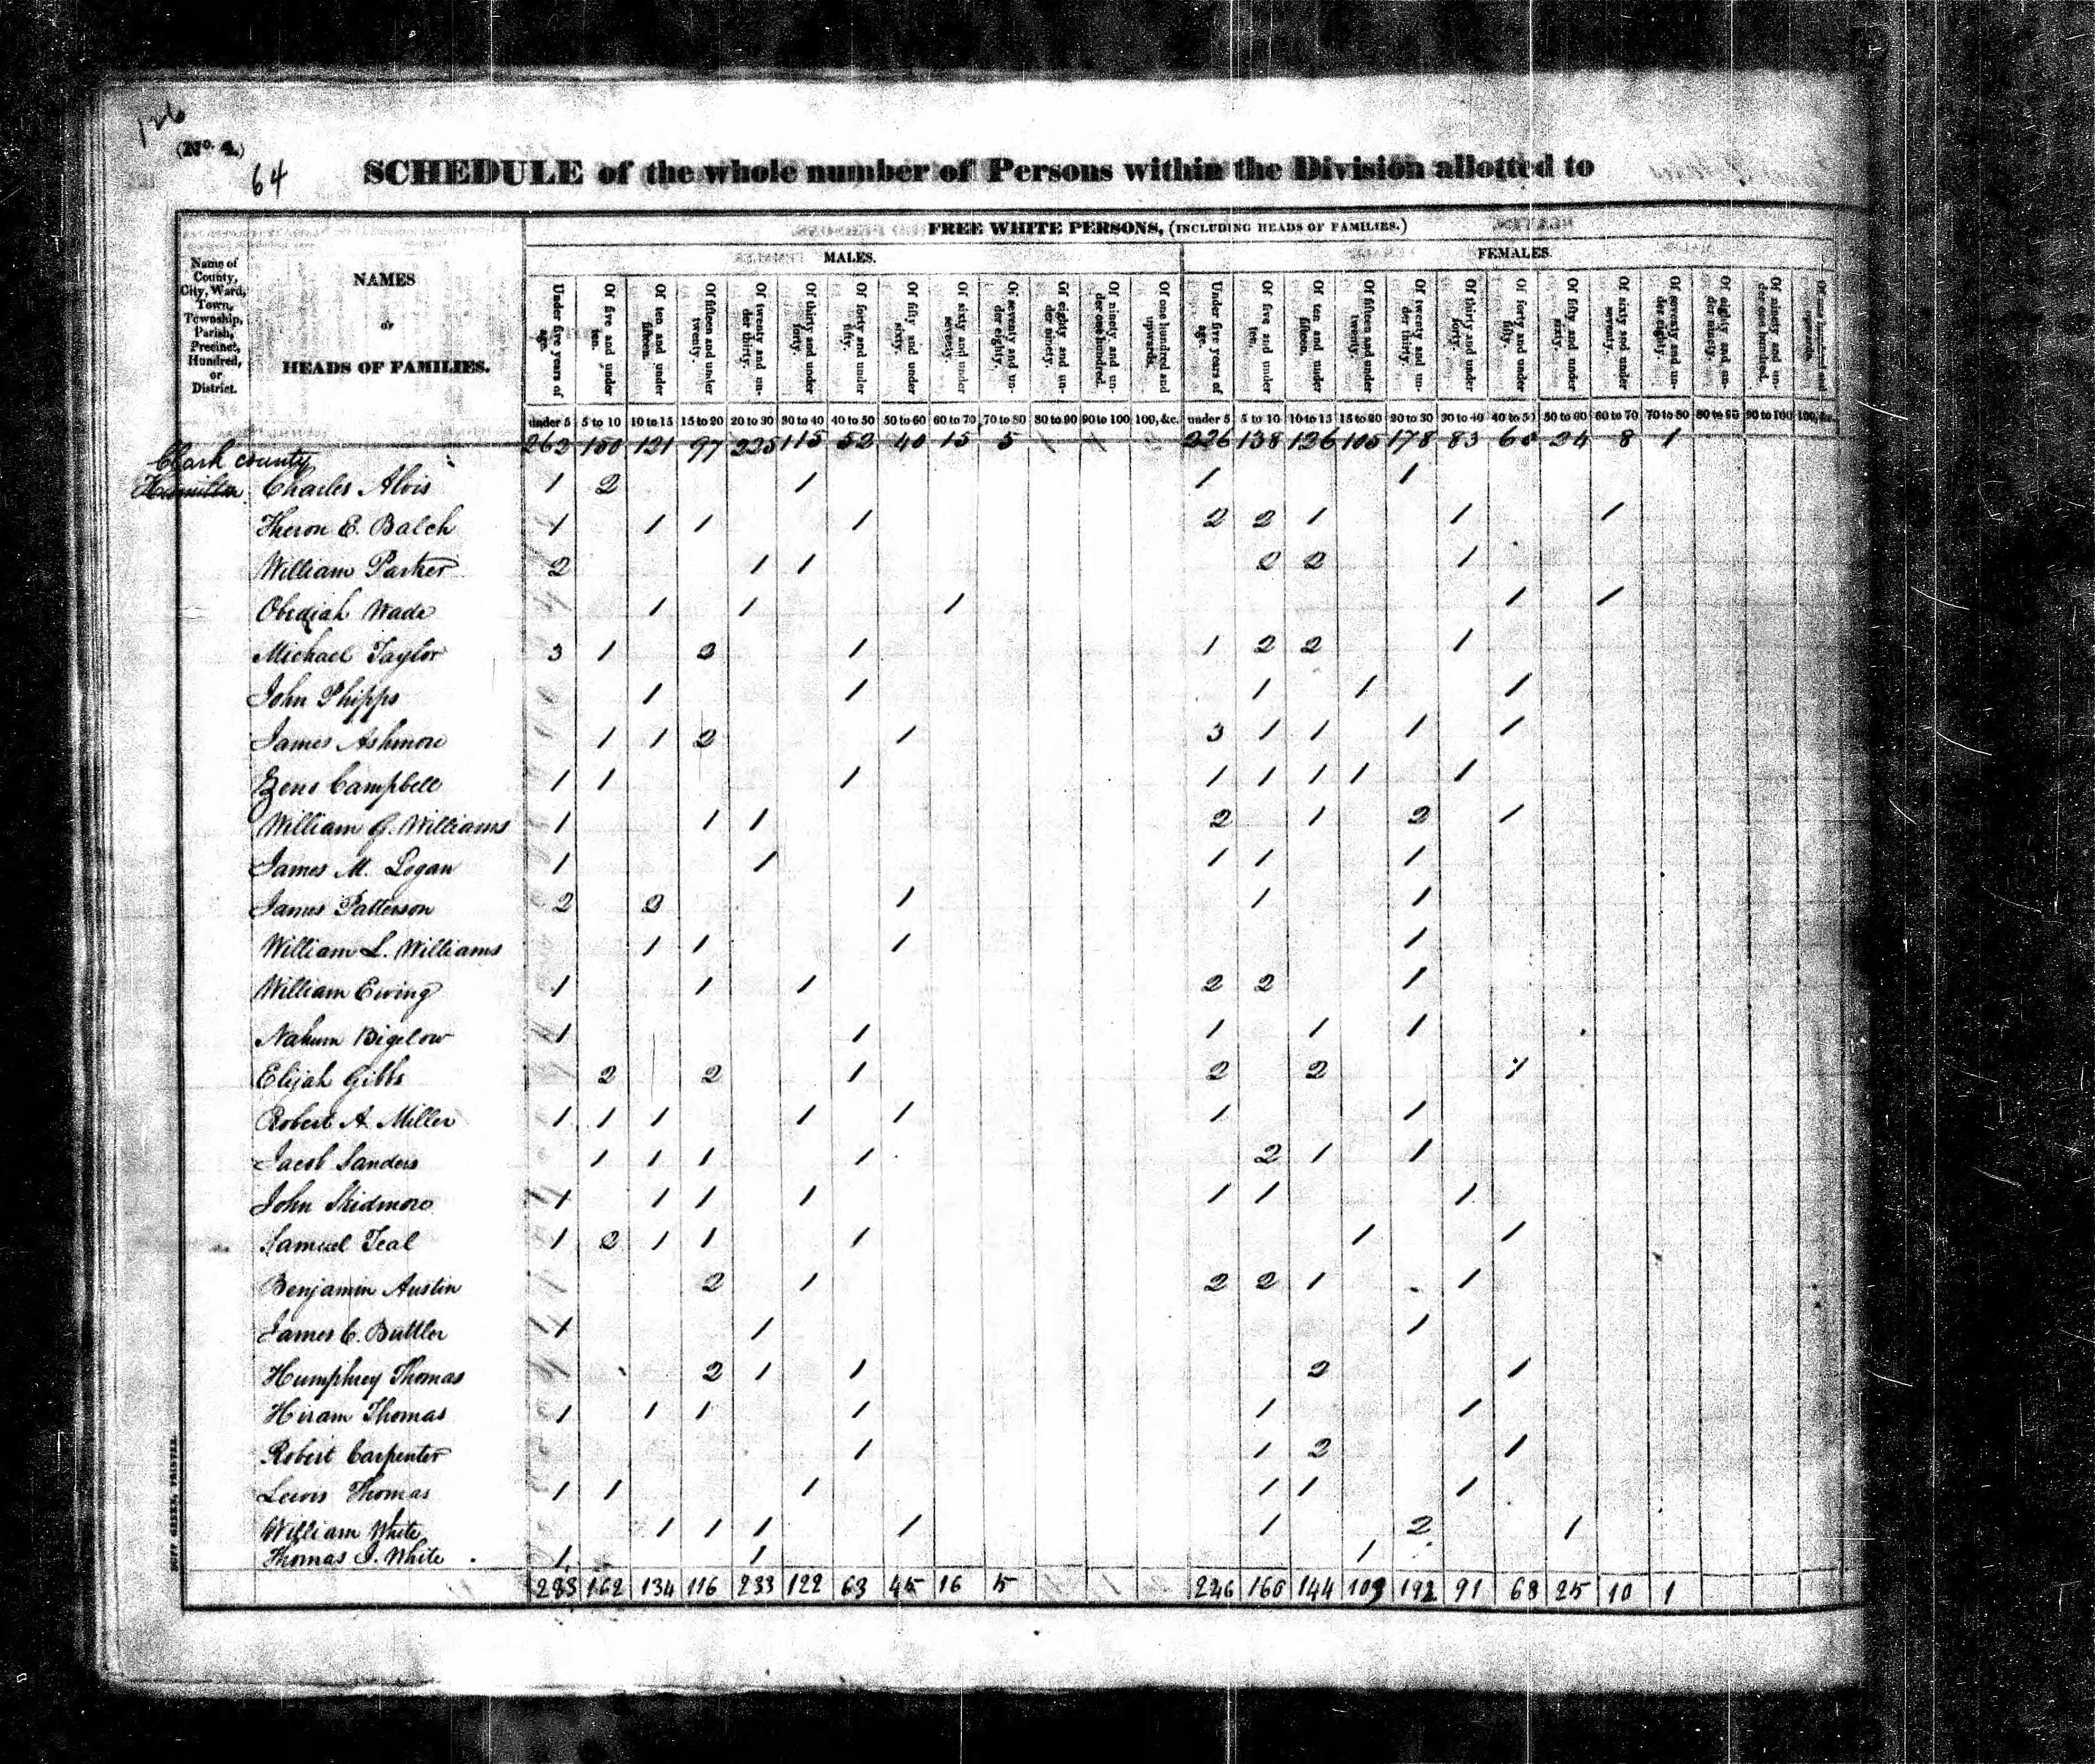 126
(No. 4.)
64
SCHEDULE of the whole number of Persons within the Division allotted to
FREE WHITE PERSONS, (INCLUDING HEADS OF FAMILIES.)
MALES. FEMALES.
Name of County, City, Ward, Town, Township, Parish, Precinct, Hundred, or District.
NAMES OF HEADS OF FAMILIES.
Under five years of age. Of five and under ten. Of ten and under fifteen. Of fifteen and under twenty. Of twenty and under thirty. Of thirty and under forty. Of forty and under fifty. Of fifty and under sixty. Of sixty and under seventy. Of seventy and under eighty. Of eighty and under ninety. Of ninety and under one hundred. Of one hundred and upwards. Under five years of age. Of five and under ten. Of ten and under fifteen. Of fifteen and under twenty. Of twenty and under thirty. Of thirty and under forty. Of forty and under fifty. Of fifty and under sixty. Of sixty and under seventy. Of seventy and under eighty. Of eighty and under ninety. Of ninety and under one hundred. Of one hundred and upwards.
under 5 5 to 10 10 to 15 15 to 20 20 to 30 30 to 40 40 to 50 50 to 60 60 to 70 70 to 80 80 to 90 90 to 100 100, &c. under 5 5 to 10 10 to 15 15 to 20 20 to 30 30 to 40 40 to 50 50 to 60 60 to 70 70 to 80 80 to 90 90 to 100 100, &c.
262 150 121 97 225 115 52 40 15 5 226 138 126 105 178 83 60 24 8 1
Clark county
Hamilton Charles Alvis 1 2 1 1 1
Theron E. Balch 1 1 1 1 2 2 1 1 1
William Parker 2 1 1 2 2 1
Obediah Wade 1 1 1 1 1
Michael Taylor 3 1 3 1 1 2 2 1
John Phipps 1 1 1 1 1
James Ashmore 1 1 2 1 3 1 1 1 1
Zeno Campbell 1 1 1 1 1 1 1 1
William G. Williams 1 1 1 2 1 2 1
James M. Logan 1 1 1 1 1
James Patterson 2 2 1 1 1
William L. Williams 1 1 1 1
William Ewing 1 1 1 2 2 1
Nahum Bigelow 1 1 1 1 1
Elijah Gibbs 2 2 1 2 2 1
Robert A. Miller 1 1 1 1 1 1 1
Jacob Sanders 1 1 1 1 2 1 1
John Skidmore 1 1 1 1 1 1 1
Samuel Teal 1 2 1 1 1 1 1
Benjamin Austin 2 1 2 2 1 1
James C. Buttler 1 1 1
Humphrey Thomas 2 1 1 2 1
Hiram Thomas 1 1 1 1 1 1
Robert Carpenter 1 1 2 1
Lewis Thomas 1 1 1 1 1 1
William White 1 1 1 1 1 2 1
Thomas J. White 1 1 1
283 162 134 116 233 122 63 45 16 5 246 160 144 109 192 91 68 25 10 1
DUFF GREEN, PRINTER